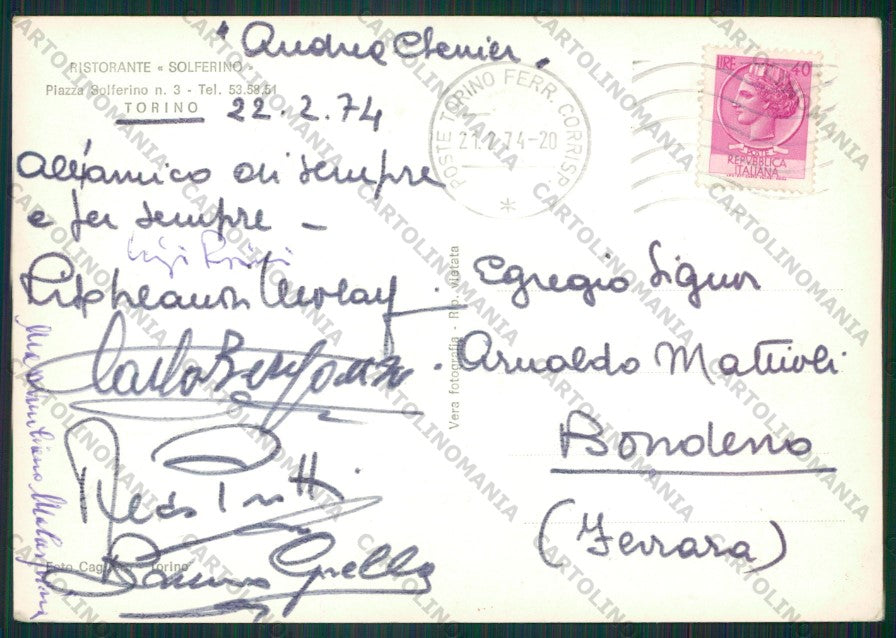 "Andrea Chenier"
RISTORANTE « SOLFERINO »
Piazza Solferino n. 3 - Tel. 53.58.51
TORINO
22.2.74
All'amico di sempre
e per sempre -
Luigi
Carlo Bergonzi
Aldo Protti
Massimiliano
Foto Cagliero Torino
Vera fotografia - Rip. vietata
POSTE TORINO FERR. CORRISP.
21.2.74-20
LIRE 40
POSTE
REPUBBLICA
ITALIANA
Egregio Signor
Arnaldo Mattioli
Bondeno
(Ferrara)
CARTOLINOMANIA